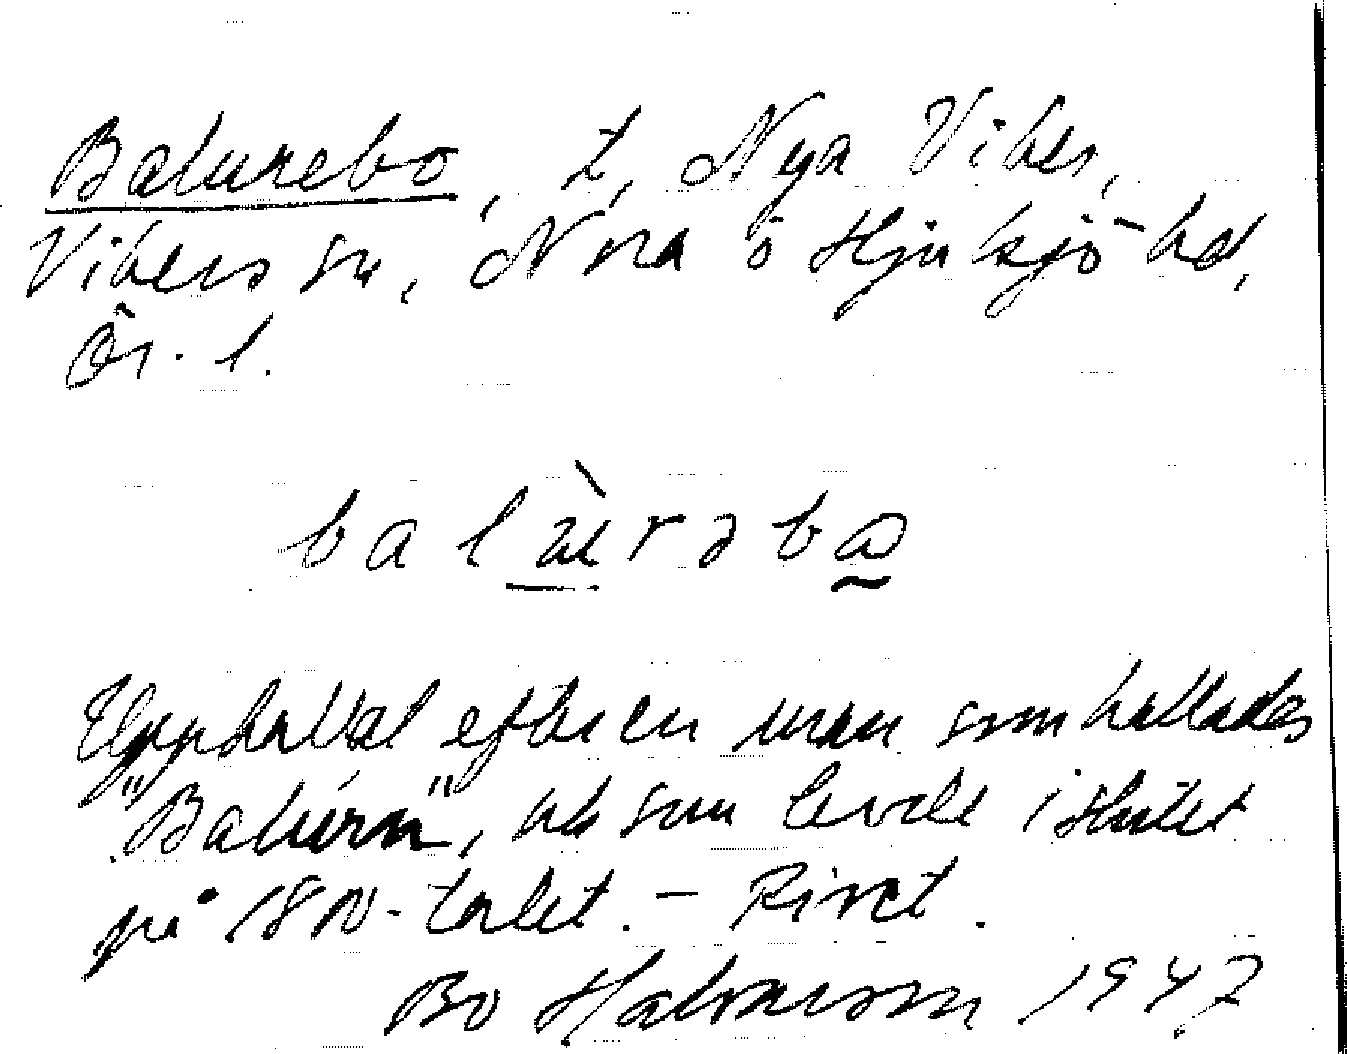 Balurebo, t, Nya Viker,
Vikers sn, Nora o Hjulsjö hd,
Ör. l.
balùrəbω
Uppkallat efter en man som kallades
"Baluren", och som levde i slutet
på 1800-talet. – Rivet.
Bo Halvarsson 1947